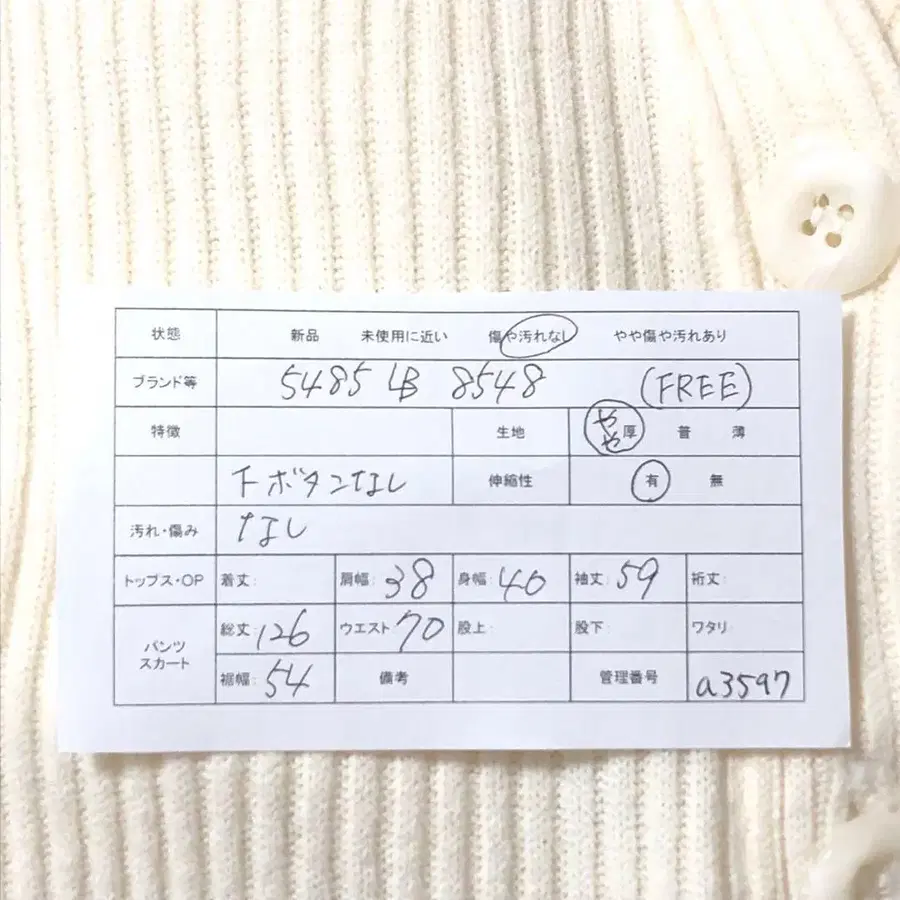 状態 新品 未使用に近い 傷や汚れなし やや傷や汚れあり
ブランド等 5485 LB 8548 (FREE)
特徴 生地 やや厚 普 薄
下ボタンなし 伸縮性 有 無
汚れ・傷み なし
トップス・OP 着丈: 肩幅: 38 身幅: 40 袖丈: 59 裄丈:
パンツ スカート 総丈: 126 ウエスト 70 股上: 股下: ワタリ:
裾幅: 54 備考 管理番号 a3597